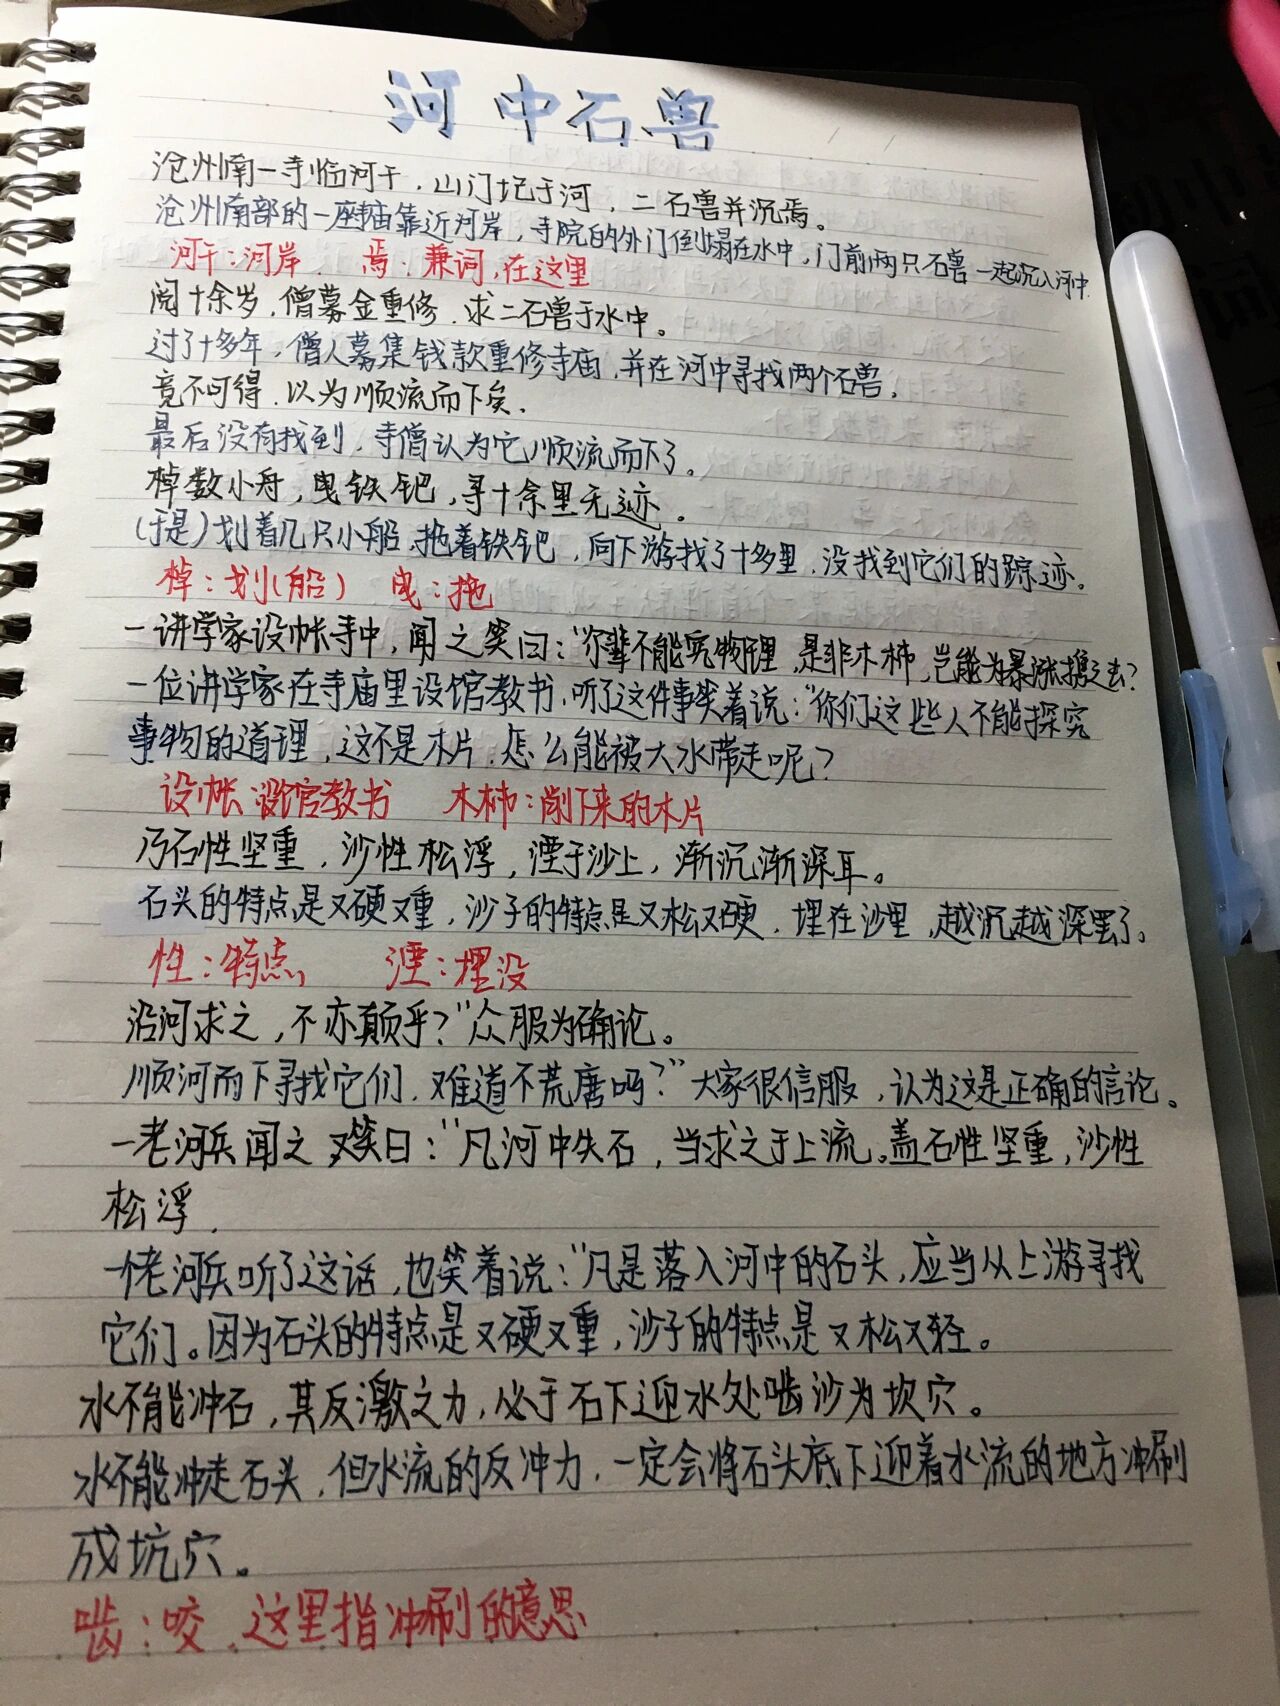 河中石兽
沧州南一寺临河干，山门圮于河，二石兽并沉焉。
沧州南部的一座寺庙靠近河岸，寺院的外门倒塌在水中，门前两只石兽一起沉入河中.
河干：河岸. 焉：兼词，在这里
阅十余岁，僧募金重修.求二石兽于水中。
过了十多年，僧人募集钱款重修寺庙，并在河中寻找两个石兽，
竟不可得.以为顺流而下矣.
最后没有找到，寺僧认为它顺流而下了。
棹数小舟，曳铁钯，寻十余里无迹.
(于是)划着几只小船，拖着铁钯，向下游找了十多里，没找到它们的踪迹。
棹：划(船) 曳：拖
一讲学家设帐寺中，闻之笑曰："尔辈不能究物理，是非木杮，岂能为暴涨携之去？
一位讲学家在寺庙里设馆教书，听了这件事笑着说："你们这些人不能探究
事物的道理，这不是木片，怎么能被大水带走呢？
设帐：设馆教书 木杮：削下来的木片
乃石性坚重，沙性松浮，湮于沙上，渐沉渐深耳。
石头的特点是又硬又重，沙子的特点是又松又硬，埋在沙里，越沉越深罢了。
性：特点 湮：埋没
沿河求之，不亦颠乎？"众服为确论。
顺河而下寻找它们，难道不荒唐吗？"大家很信服，认为这是正确的言论。
一老河兵闻之，又笑曰："凡河中失石，当求之于上流。盖石性坚重，沙性
松浮.
一老河兵听了这话，也笑着说："凡是落入河中的石头，应当从上游寻找
它们。因为石头的特点是又硬又重，沙子的特点是又松又轻。
水不能冲石，其反激之力，必于石下迎水处啮沙为坎穴。
水不能冲走石头，但水流的反冲力，一定会将石头底下迎着水流的地方冲刷
成坑穴。
啮：咬.这里指冲刷的意思